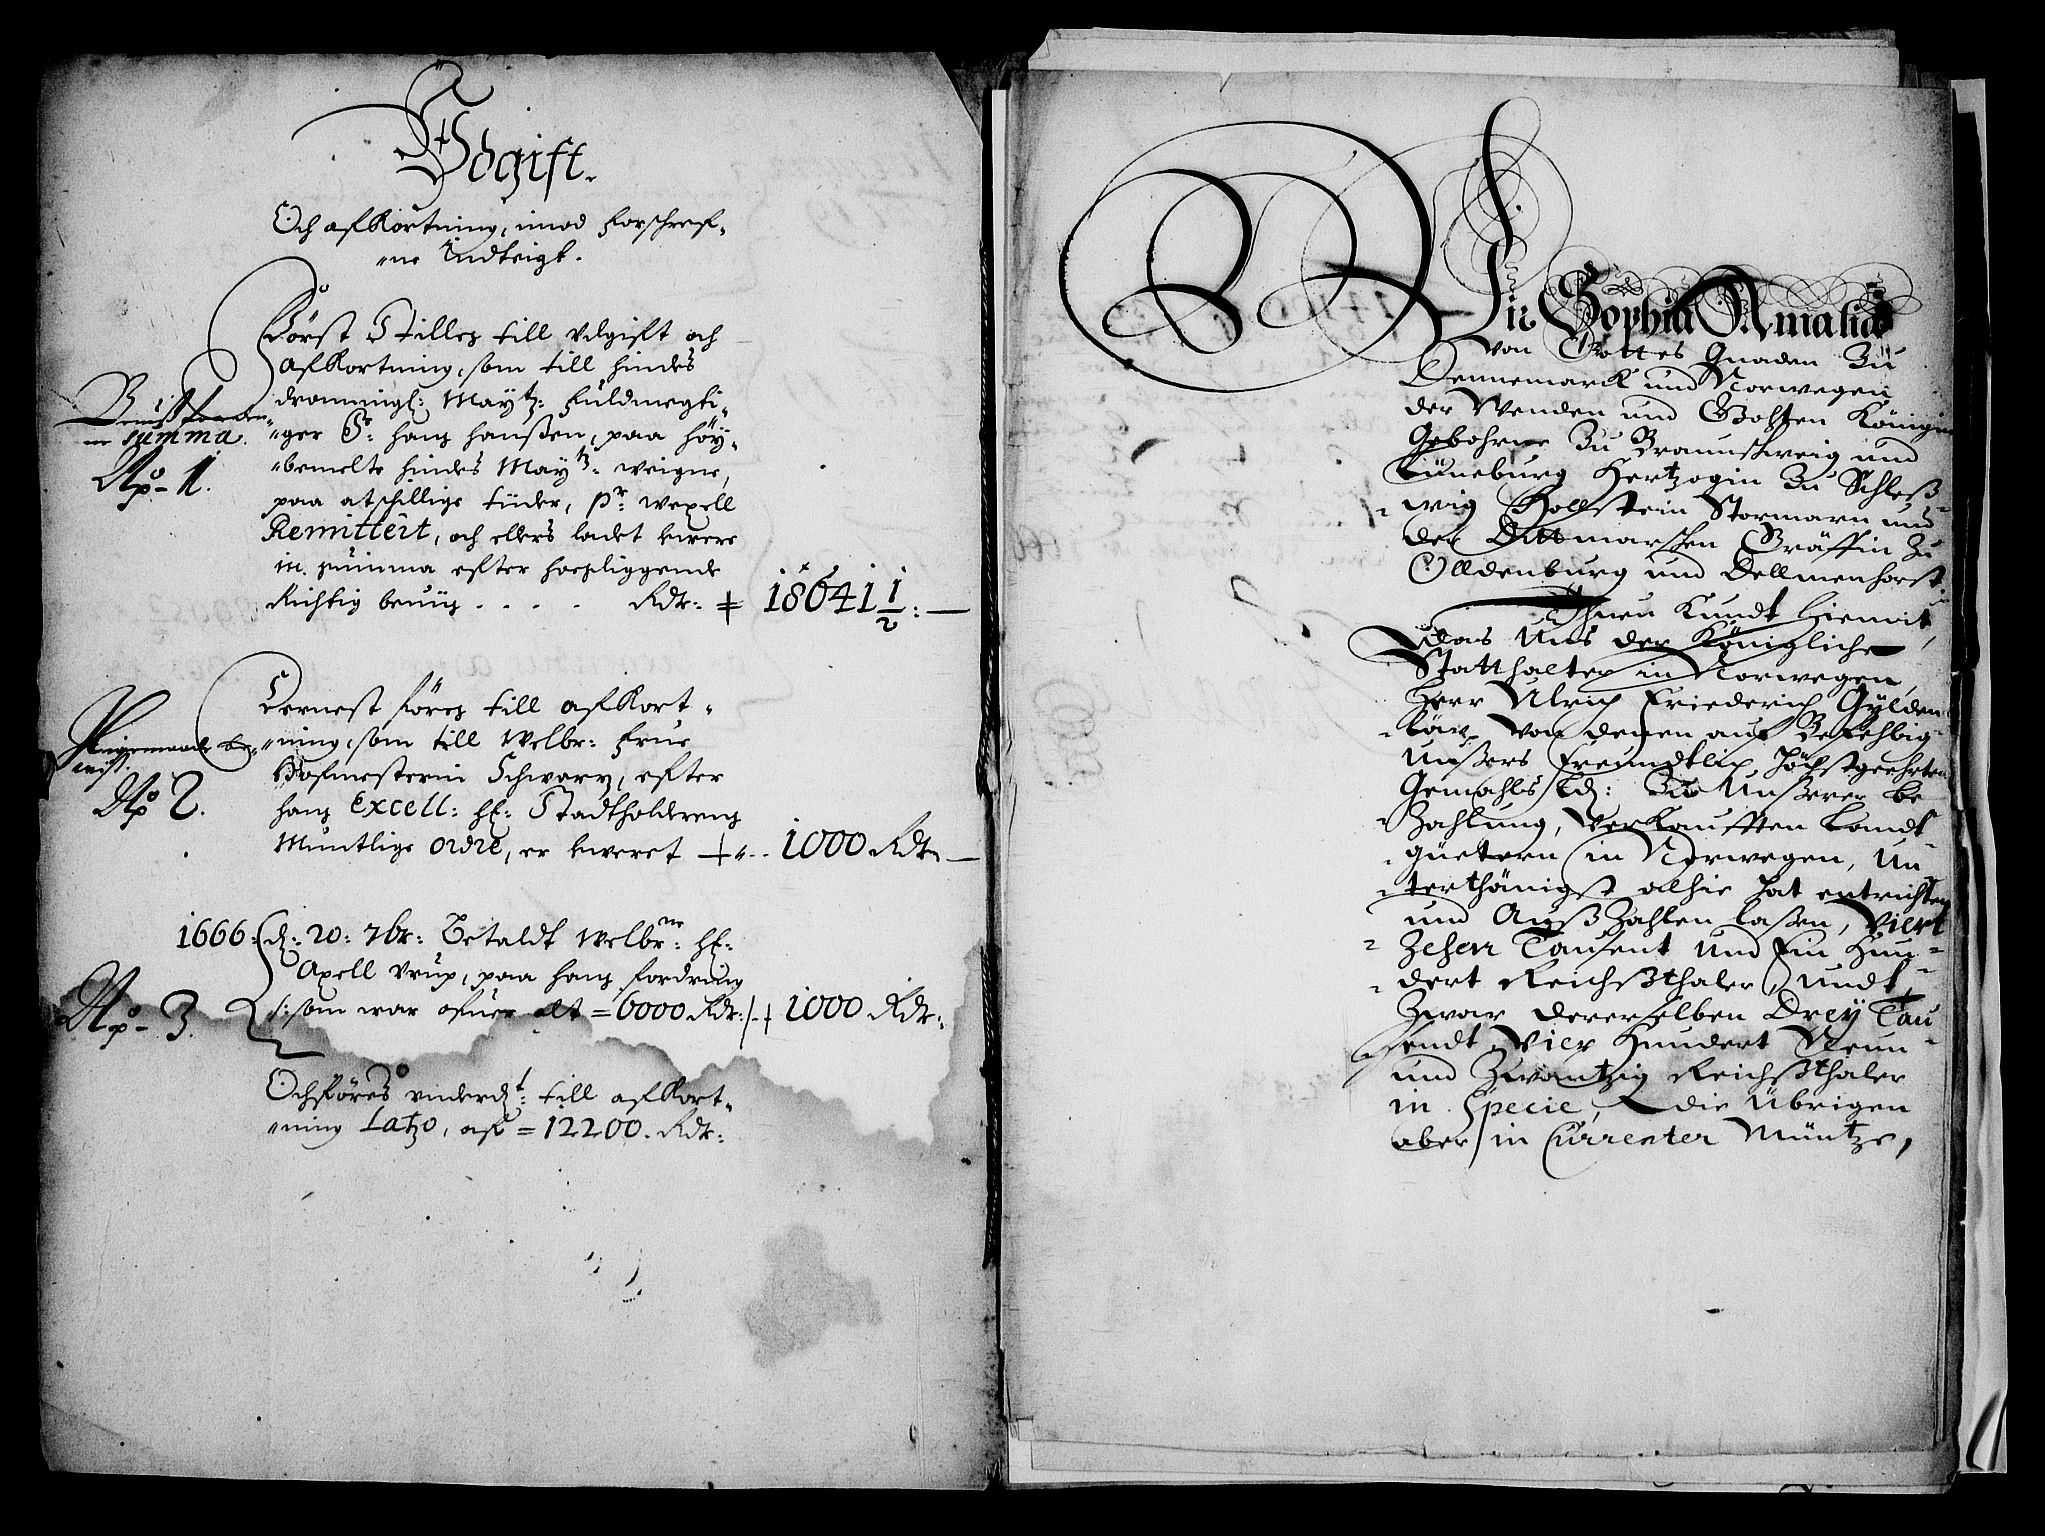 Vdgift.
Och afkortning, imod forschref-
-ne Indteigt.
Först Stilles till vdgift och
afkortning, som till hindes
dronningl: Maytz: fuldmegti-
-ger Sr: hans hanßen, paa höy-
-bemelte hindes Maytz: weigne,
paa atschillige tüder, pr: wexell
Remittert, och ellers ladet levere
in summa efter hosliggende
Richtig beuiis . . . . Rdr: 18641 1/2:
summa.
No- 1.
Dernest föres till afkort-
-ning, som till Welbr: frue
Hofmesterin Schwartz, efter
hans Excell: hr: Stadtholderens
Muntlige ordre, er leveret 1000 Rdr
No 2.
1666: d: 20: 7br: Betaldt Welbrne: hr:
Axell Vrup, paa hans fordring
/: som war ofuer alt = 6000 Rdr: / 1000 Rdr:
No- 3.
Och föres vnderdt: till afkort-
-ning Latzo, af = 12200. Rdr:
Wir Sophia Amalia
von Gottes Gnaden Zu
Dennemarck und Norwegen
der Wenden und Gothen Königin
Gebohrne Zu Braunschweig und
Lüneburg Hertzogin Zu Schleß-
-wig Hollstein Stormarn und
der Dittmarschen Gräffin Zu
Olldenburg und Dellmenhorst
Thuen Kundt hiemit,
das Uns der Königliche
Statthalter in Norwegen,
Herr Ulrich Friederich Gylden-
-löw, von denen auf Befehlig
Unßers Freundtlich höchstgeehrten
Gemahls Ld: Zu Unßerer be-
-Zahlung, Verkaufften Landt-
-güetern in Norwegen, Un-
-terthänigst alhie hat entrichten
und Auß Zahlen laßen, Viert
Zehen Tausent Und Ein Hun-
-dert Reichßthaler, Undt
Zwar dererselben Drey Tau-
-sendt Vier Hundert Neun-
und Zwantzig Reichßthaler
in Specie, die Übrigen
aber in Currenter Müntze,